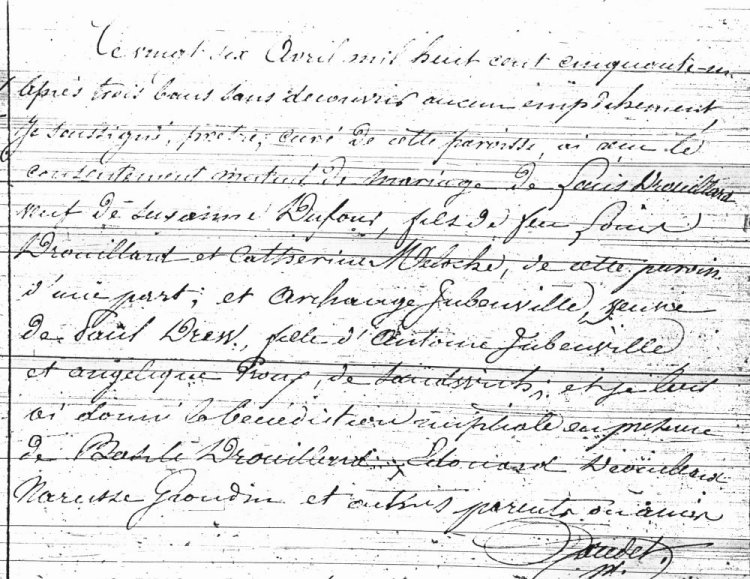 Le vingt six Avril mil huit cent cinquante-un
après trois bans sans decouvrir aucun empêchement,
Je soussigné, prêtre, curé de cette paroisse, ai reçu le
consentement mutuel de mariage de Louis Drouillard
veuf de Susanne Dufour, fils de feu Louis
Drouillard et Catherine Meloche, de cette paroisse
d'une part; et Archange Jubenville, veuve
de Paul Drew, fille d'Antoine Jubenville
et angelique Prouf, de Sandwich; et je leur
ai donné la bénédiction nuptiale en présence
de Basile Drouillard, Edouard Drouillard
Narcisse Groudin et autres parents ou amis